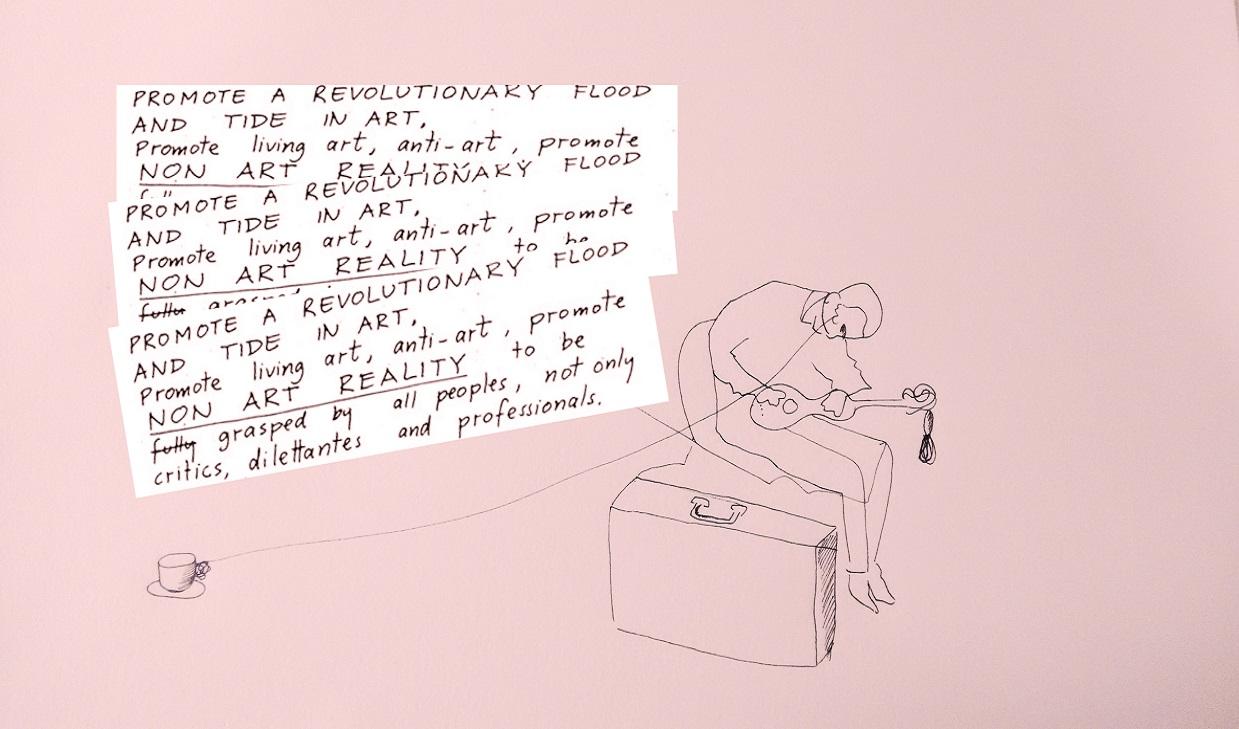 PROMOTE A REVOLUTIONARY FLOOD
AND TIDE IN ART,
Promote living art, anti-art, promote
NON ART REALITY
PROMOTE A REVOLUTIONARY FLOOD
AND TIDE IN ART,
Promote living art, anti-art, promote
NON ART REALITY to be
fully grasped
PROMOTE A REVOLUTIONARY FLOOD
AND TIDE IN ART,
Promote living art, anti-art, promote
NON ART REALITY to be
fully grasped by all peoples, not only
critics, dilettantes and professionals.